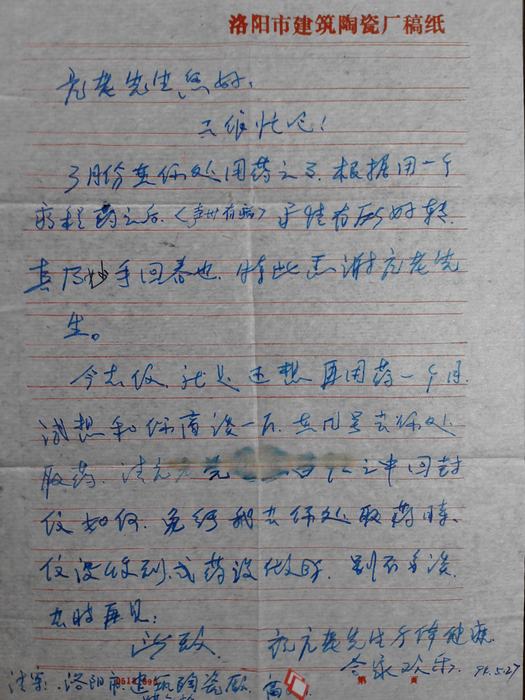 洛阳市建筑陶瓷厂稿纸
亢老先生您好,
工作忙吧!
3月份在你处用药之了.根据用一个
疗程药之后.手 有所好转.
真乃妙手回春也.特此感谢亢老先
生。
今去信.就是还想再用药一个月.
试想和你商谈一下.在几号去你处
取药.请亢老先 百忙之中回封
信如何.免得我去你处取药时.
信没收到.或药没做好.别不多谈.
去时再见:
此致. 祝亢老先生身体健康.
合家欢乐. 94.5.27
洛阳市建筑陶瓷厂.高
第 页